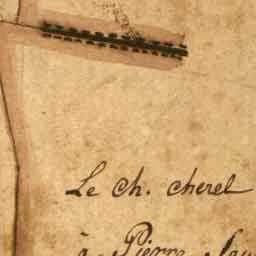 Le Ch. cherel
à Pierre